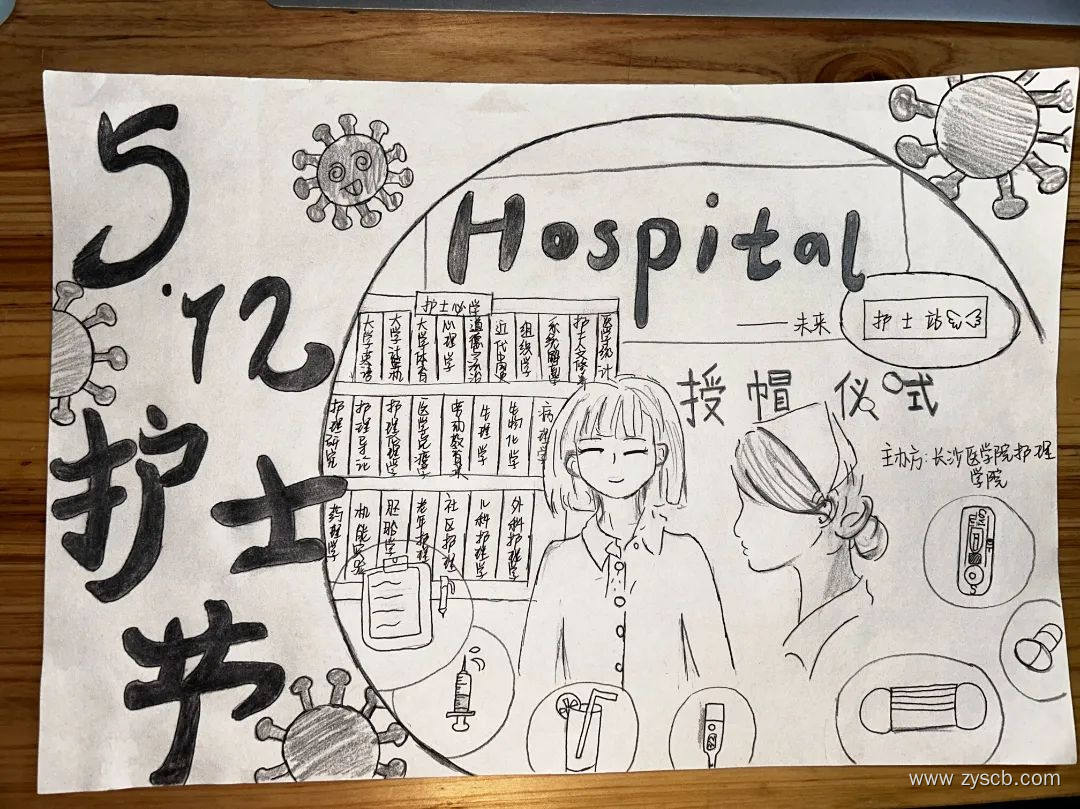 5.12
护士节
Hospital
——未来
护士站
授帽仪式
主办方:长沙医学院护理
学院
护士必学
大学英语
大学计算机
大学体育
心理学
组织学
系统解剖学
医学统计
护理研究
护理导论
护理伦理学
医学免疫学
劳动教育
生理学
生物化学
病理学
药理学
机能实验
老年护理
社区护理
儿科护理学
外科护理学
www.zyscb.com